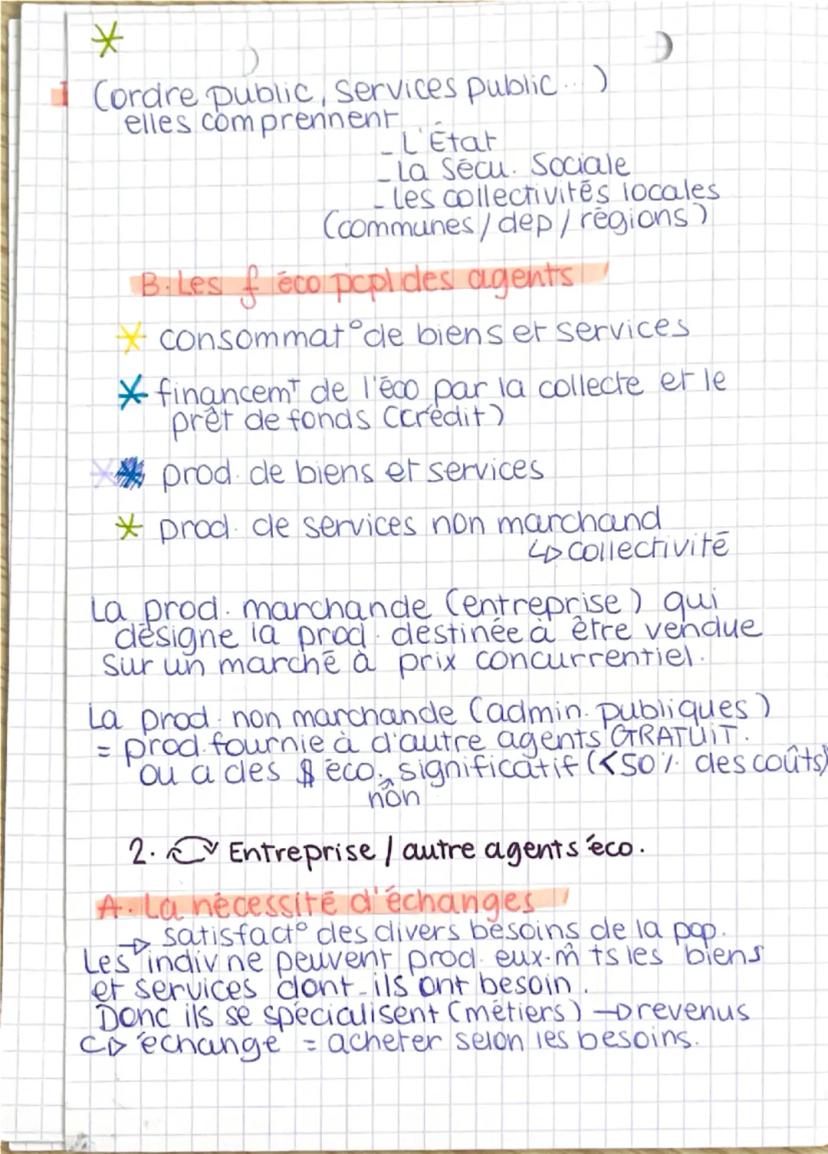 (ordre public, services public...)
elles comprennent
- L'État
- La Sécu. Sociale
- les collectivités locales
(communes / dep / régions)
B. Les f éco pcpl des agents
consommat° de biens et services
financemt de l'éco par la collecte et le
prêt de fonds (crédit)
prod. de biens et services
prod. de services non marchand
↳ collectivité
La prod. marchande (entreprise) qui
désigne la prod. destinée à être vendue
sur un marché à prix concurrentiel.
La prod. non marchande (admin. publiques)
= prod. fournie à d'autre agents GRATUIT.
ou a des $ éco. significatif (<50% des coûts)
non
2. Entreprise / autre agents éco.
A. La nécessité d'échanges
→ satisfact° des divers besoins de la pop.
Les indiv ne peuvent prod. eux-m̂ ts les biens
et services dont ils ont besoin.
Donc ils se spécialisent (métiers) → revenus
↳ échange = acheter selon les besoins.